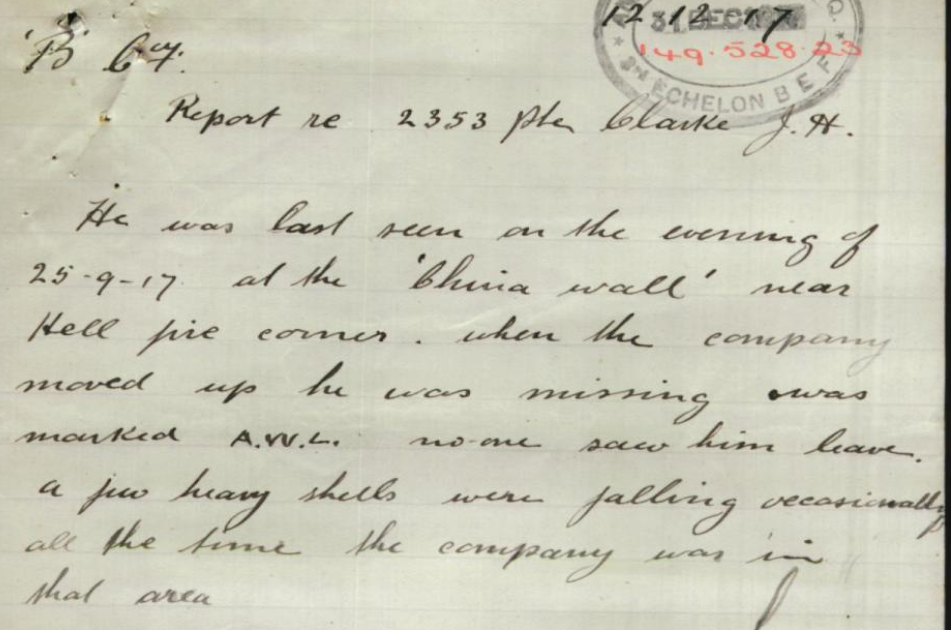 12 12 17
31 DEC
149.528.23
'B' Coy.
ECHELON B E F
Report re 2353 Pte Clarke J. H.
He was last seen on the evening of
25-9-17 at the 'China wall' near
Hell fire corner. when the company
moved up he was missing & was
marked A.W.L. no-one saw him leave.
a few heavy shells were falling occasionally
all the time the company was in
that area